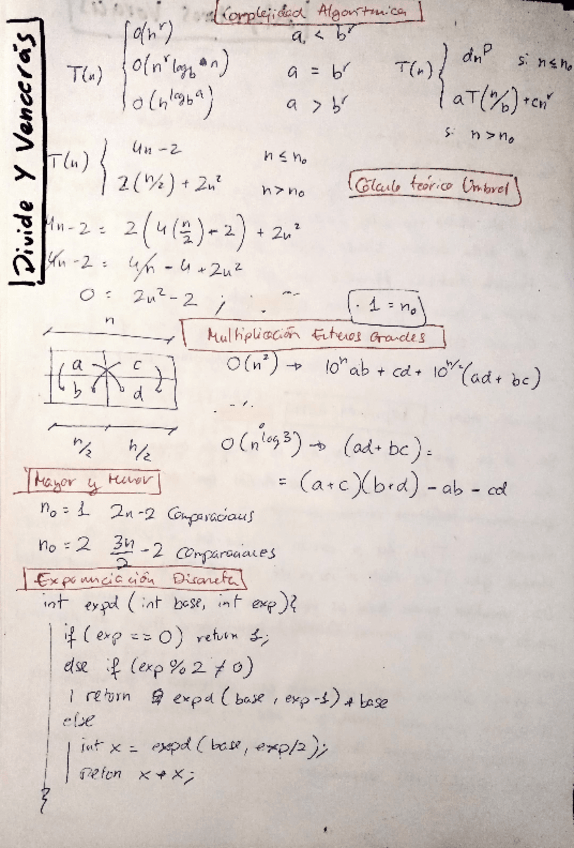 Divide Y Vencerás
Complejidad Algorítmica
T(n) { O(n^r) a < b^r
O(n^r log_b n) a = b^r
O(n^(log_b a)) a > b^r
T(n) { dn^p si n ≤ n₀
aT(n/b) + cn^r
si n > n₀
T(n) { 4n-2 n ≤ n₀
2(n/2) + 2n² n > n₀
Cálculo teórico Umbral
4n-2 = 2(4(n/2) - 2) + 2n²
4n-2 = 4n - 4 + 2n²
0 = 2n² - 2 ;
. 1 = n₀
Multiplicación Enteros Grandes
n
a c
b d
n/2 n/2
O(n²) → 10^n ab + cd + 10^(n/2) (ad + bc)
O(n^(log3)) → (ad + bc) =
= (a+c)(b+d) - ab - cd
Mayor y Menor
n₀ = 1 2n-2 Comparaciones
n₀ = 2 3n/2 - 2 comparaciones
Exponenciación Discreta
int expd (int base, int exp){
if (exp == 0) return 1;
else if (exp % 2 ≠ 0)
return expd (base, exp-1) * base
else
int x = expd (base, exp/2);
return x * x;
}